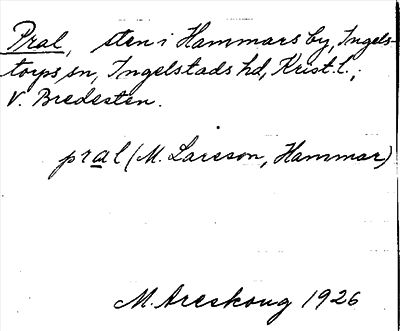 Pral, sten i Hammars by, Ingels-
torps sn, Ingelstads hd, Krist. l.,
V. Bredesten.
pral (M. Larsson, Hammar)
M. Areskoug 1926